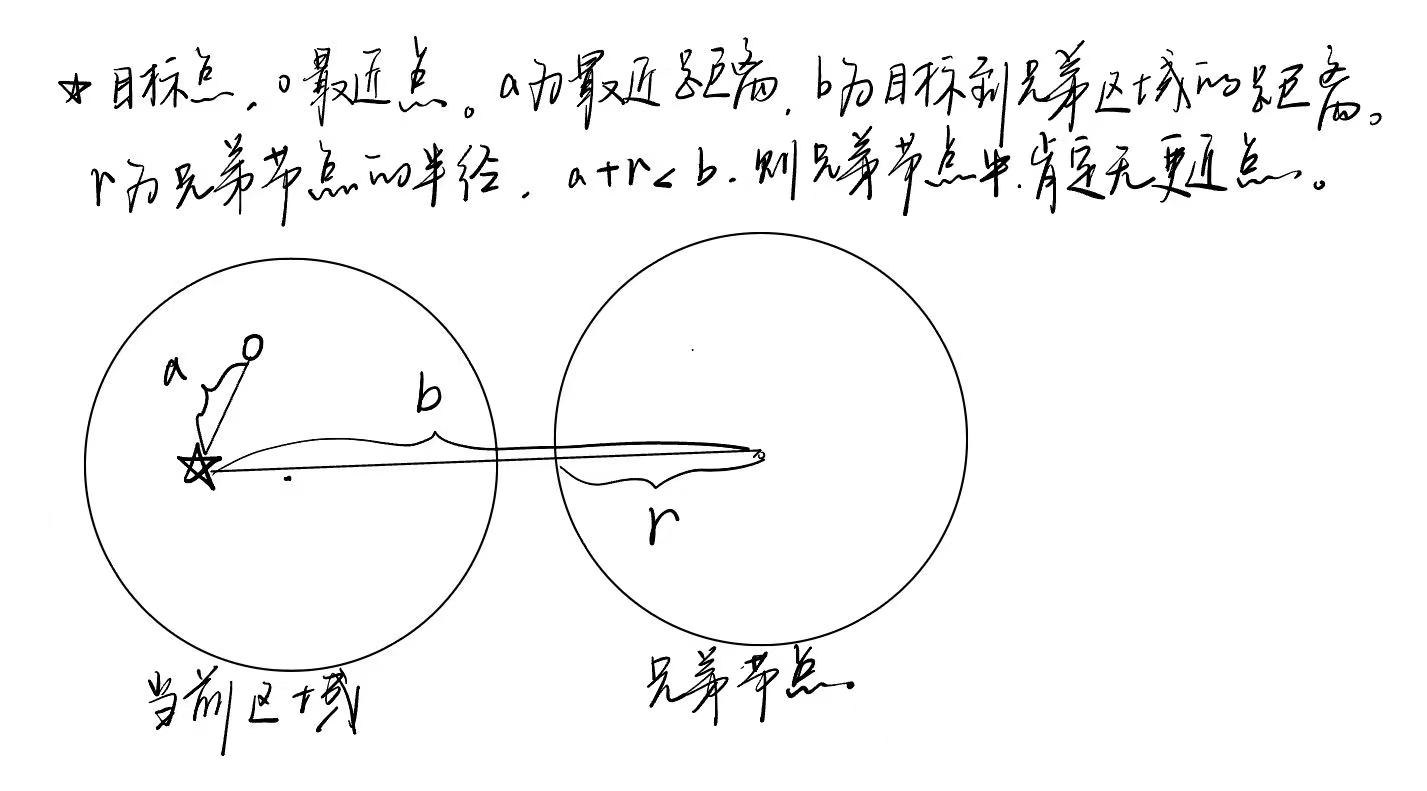 ☆目标点，o最近点。a为最近距离，b为目标到兄弟区域的距离。
r为兄弟节点的半径，a+r<b，则兄弟节点中，肯定无更近点。
o
a
b
r
当前区域
兄弟节点。